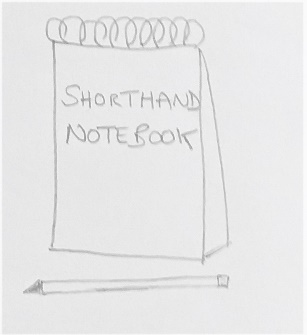 SHORTHAND
NOTEBOOK